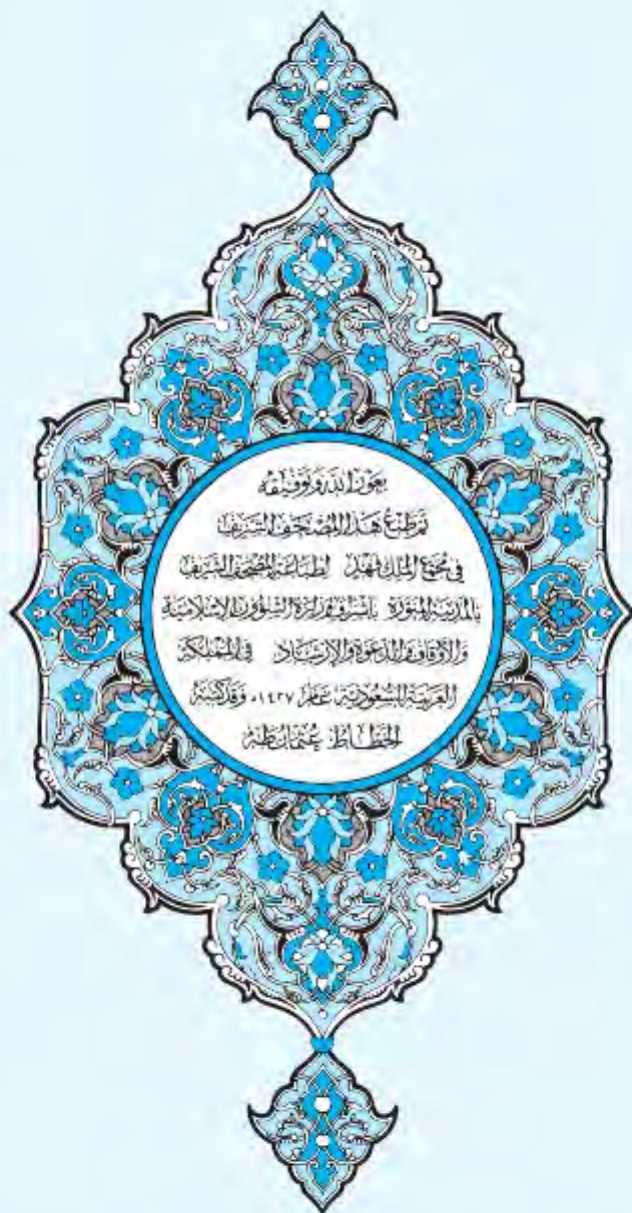 بعون الله وتوفيقه
تم طبع هذا المصحف الشريف
في مجمع الملك فهد لطباعة المصحف الشريف
بالمدينة المنورة بإشراف وزارة الشؤون الإسلامية
والأوقاف والدعوة والإرشاد في المملكة
العربية السعودية عام ١٤٢٧ه وقد كتبه
الخطاط عثمان طه